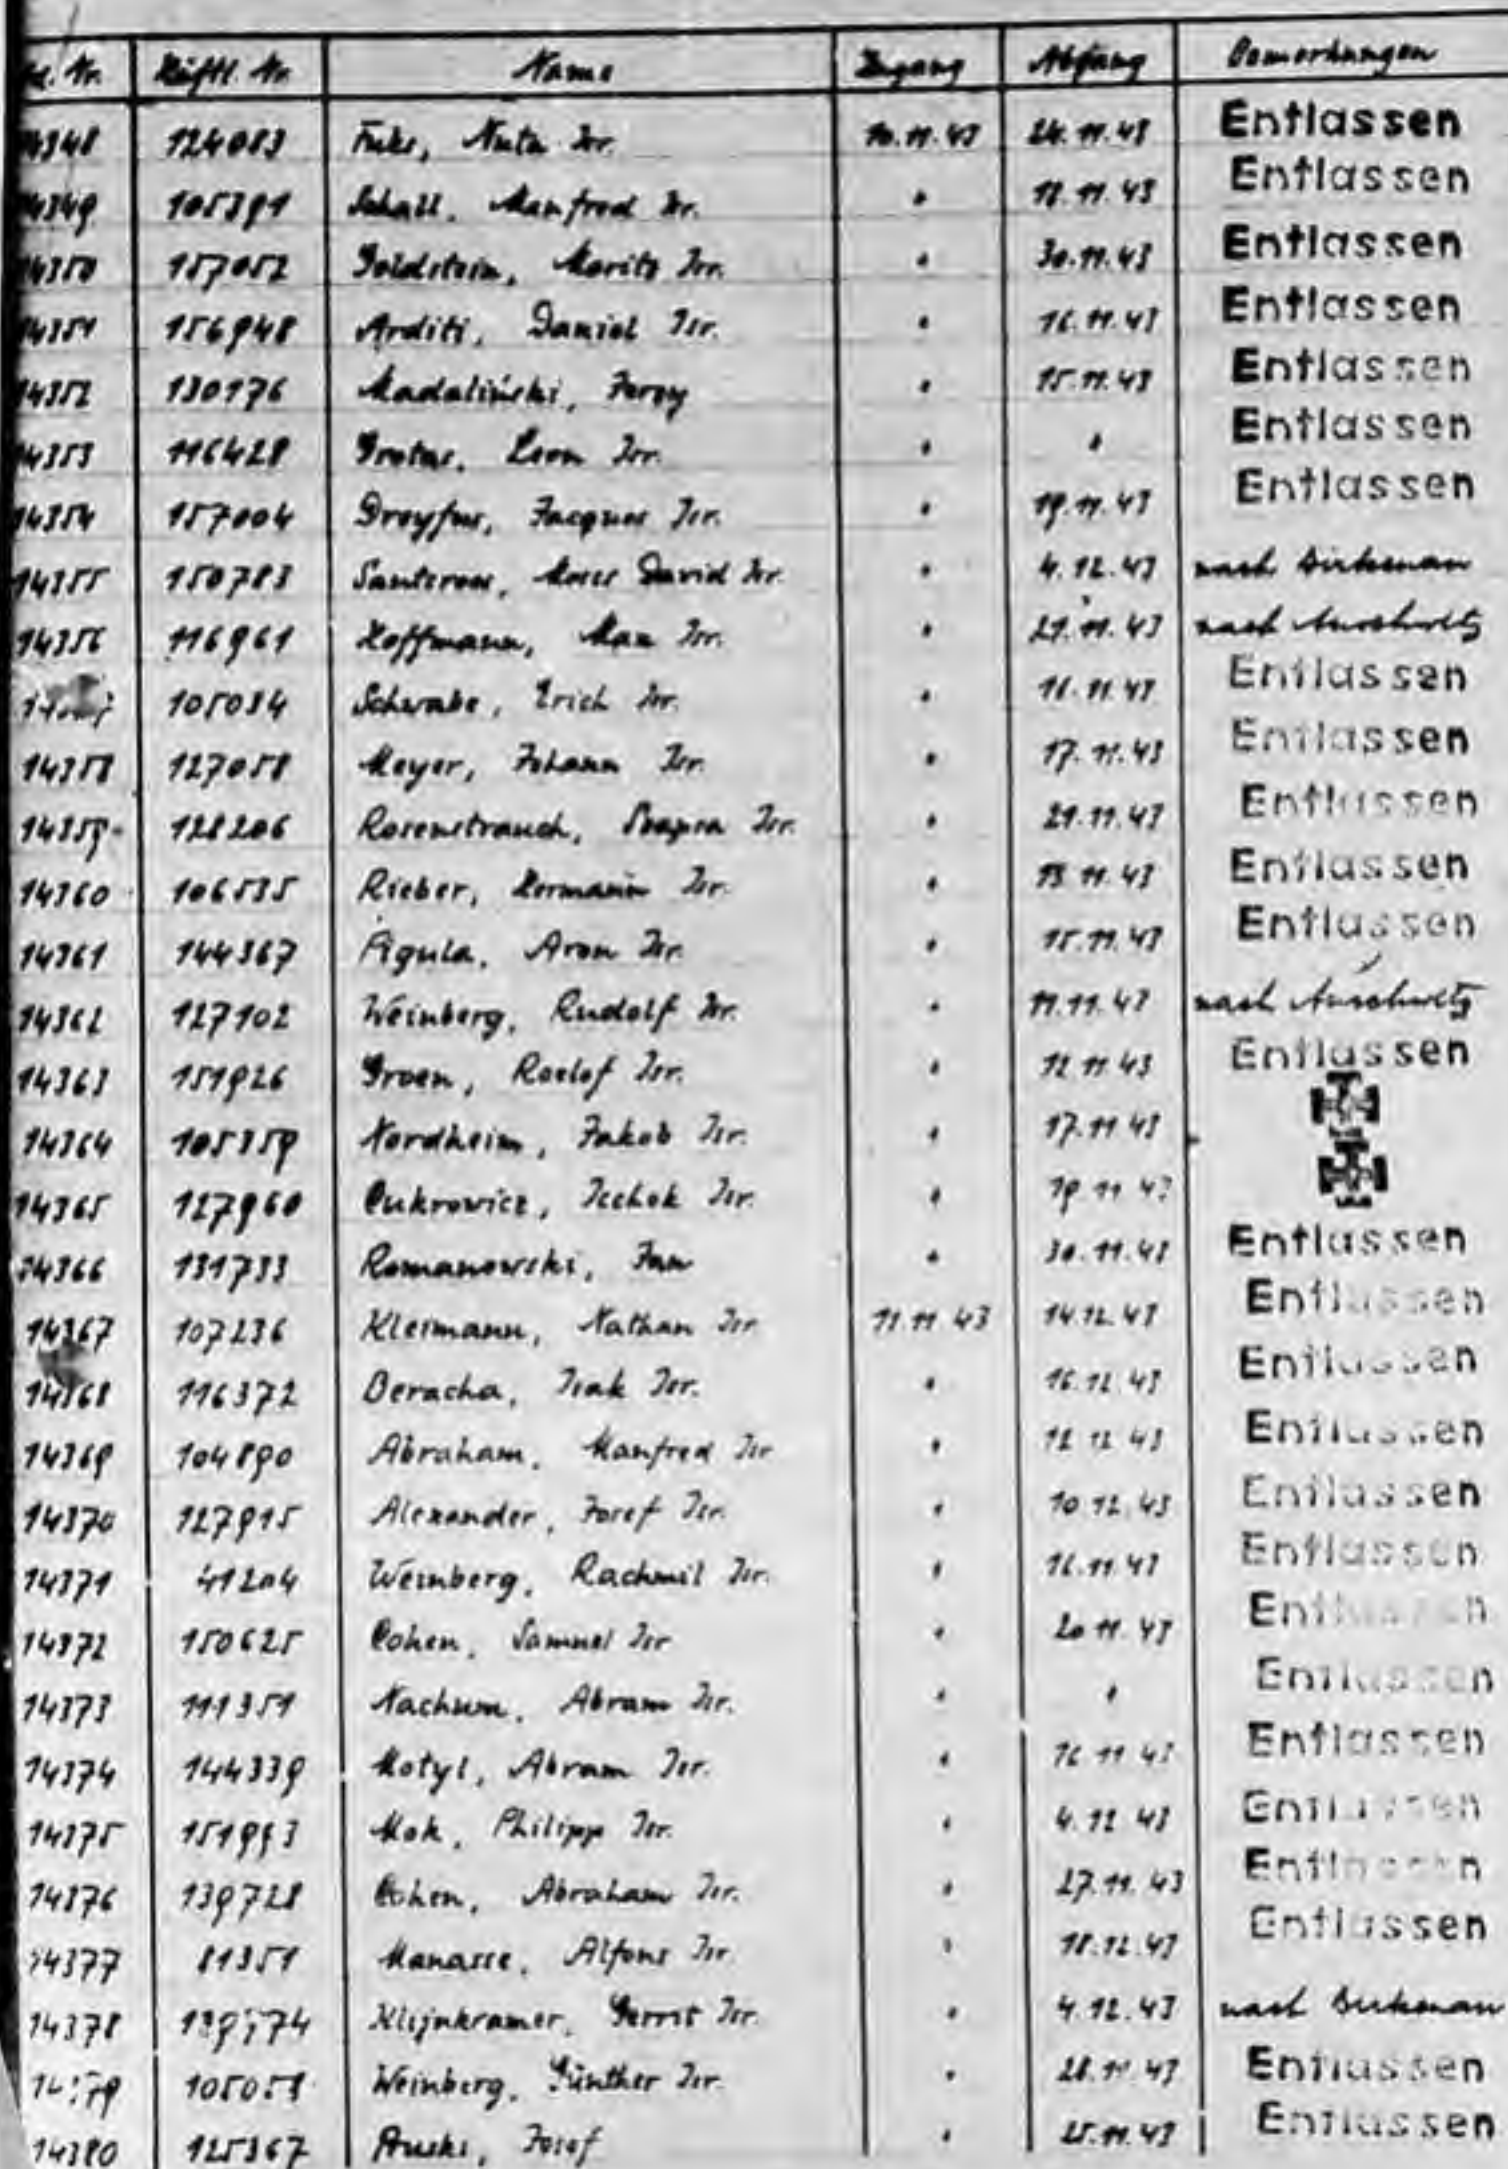 Häftl. Nr. Name Zugang Abgang Bemerkungen
14348 124083 Fuks, Nuta Isr. 10.11.43 24.11.43 Entlassen
14349 105391 Schall, Manfred Isr. " 18.11.43 Entlassen
14350 157052 Goldstein, Moritz Isr. " 30.11.43 Entlassen
14351 156948 Arditi, Daniel Isr. " 16.11.43 Entlassen
14352 130176 Madaliński, Jerzy " 15.11.43 Entlassen
14353 116428 Leon Isr. " " Entlassen
14354 157004 Dreyfus, Jacques Isr. " 19.11.43 Entlassen
14355 150783 Moses David Isr. " 4.12.43 nach Birkenau
14356 116961 Hoffmann, Max Isr. " 21.11.43 nach Auschwitz
105034 Schwabe, Erich Isr. " 16.11.43 Entlassen
14358 127058 Meyer, Johann Isr. " 17.11.43 Entlassen
14359 128206 Rosenstrauch, Isr. " 21.11.43 Entlassen
14360 106535 Rieber, Hermann Isr. " 13.11.43 Entlassen
14361 144367 Pigula, Aron Isr. " 15.11.43 Entlassen
14362 127102 Weinberg, Rudolf Isr. " 11.11.43 nach Auschwitz
14363 151926 Groen, Roelof Isr. " 12.11.43 Entlassen
14364 105359 Nordheim, Jakob Isr. " 17.11.43
14365 127960 Cukrowicz, Icchok Isr. " 19.11.43
14366 131733 Romanowski, Jan " 30.11.43 Entlassen
14367 107236 Kleimann, Nathan Isr. 11.11.43 14.12.43 Entlassen
14368 116372 Beracha, Isak Isr. " 16.12.43 Entlassen
14369 104890 Abraham, Manfred Isr " 12.12.43 Entlassen
14370 127915 Alexander, Josef Isr. " 10.12.43 Entlassen
14371 41204 Weinberg, Rachmil Isr. " 16.11.43 Entlassen
14372 150625 Cohen, Samuel Isr " 20.11.43 Entlassen
14373 111351 Nachum, Abram Isr. " " Entlassen
14374 144339 Motyl, Abram Isr. " 16.11.43 Entlassen
14375 151993 Mok, Philipp Isr. " 4.12.43 Entlassen
14376 139728 Cohen, Abraham Isr. " 27.11.43 Entlassen
14377 81351 Manasse, Alfons Isr. " 18.12.43 Entlassen
14378 Klijnkramer, Gerrit Isr. " 4.12.43 nach Birkenau
105058 Weinberg, Günther Isr. " 28.11.43 Entlassen
14380 125367 Josef " 25.11.43 Entlassen